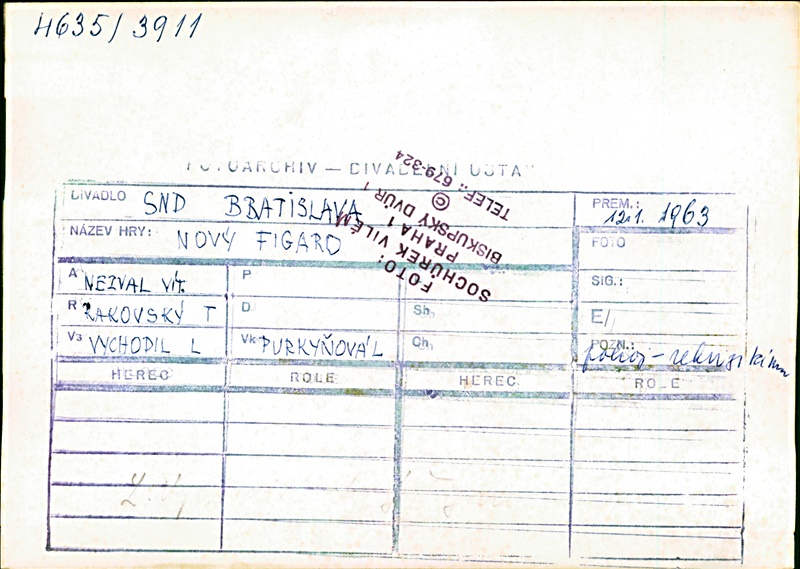 4635/3911
FOTOARCHIV — DIVADELNÍ ÚSTAV
DIVADLO SND BRATISLAVA
PREM.: 12.1. 1963
NÁZEV HRY: NOVÝ FIGARO
FOTO
FOTO:
SOCHŮREK VILÉM
PRAHA 1
BISKUPSKÝ DVŮR 1
TELEF.: 679-324
©
A NEZVAL VÍT. P SIG.:
R RAKOVSKÝ T D Sh E/
Vš VYCHODIL L Vk PURKYŇOVÁ L Ch POZN.:
HEREC ROLE HEREC ROLE